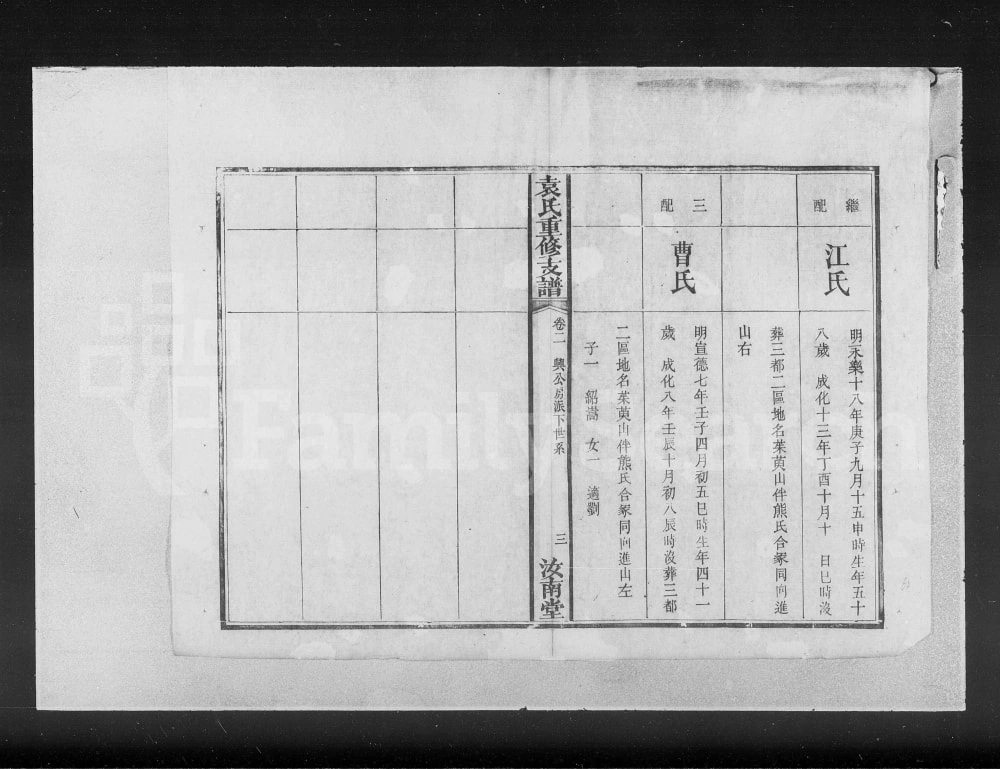 繼配
江氏
明永樂十八年庚子九月十五申時生年五十
八歲 成化十三年丁酉十月十 日巳時沒
葬三都二區地名茱萸山伴熊氏合冢同向進
山右
三配
曹氏
明宣德七年壬子四月初五巳時生年四十一
歲 成化八年壬辰十月初八辰時沒葬三都
二區地名茱萸山伴熊氏合冢同向進山左
子一 紹嵩 女一 適劉
袁氏重修支譜
卷二 興公房派下世系
三
汝南堂
FamilySearch